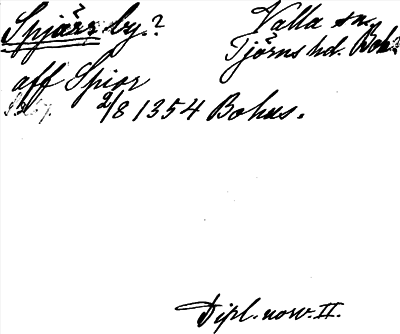 Spjärr by?
Valla sn.
Tjörns hd. Boh.
aff Spior
2/8 1354 Bohus.
Dipl. norv. II.